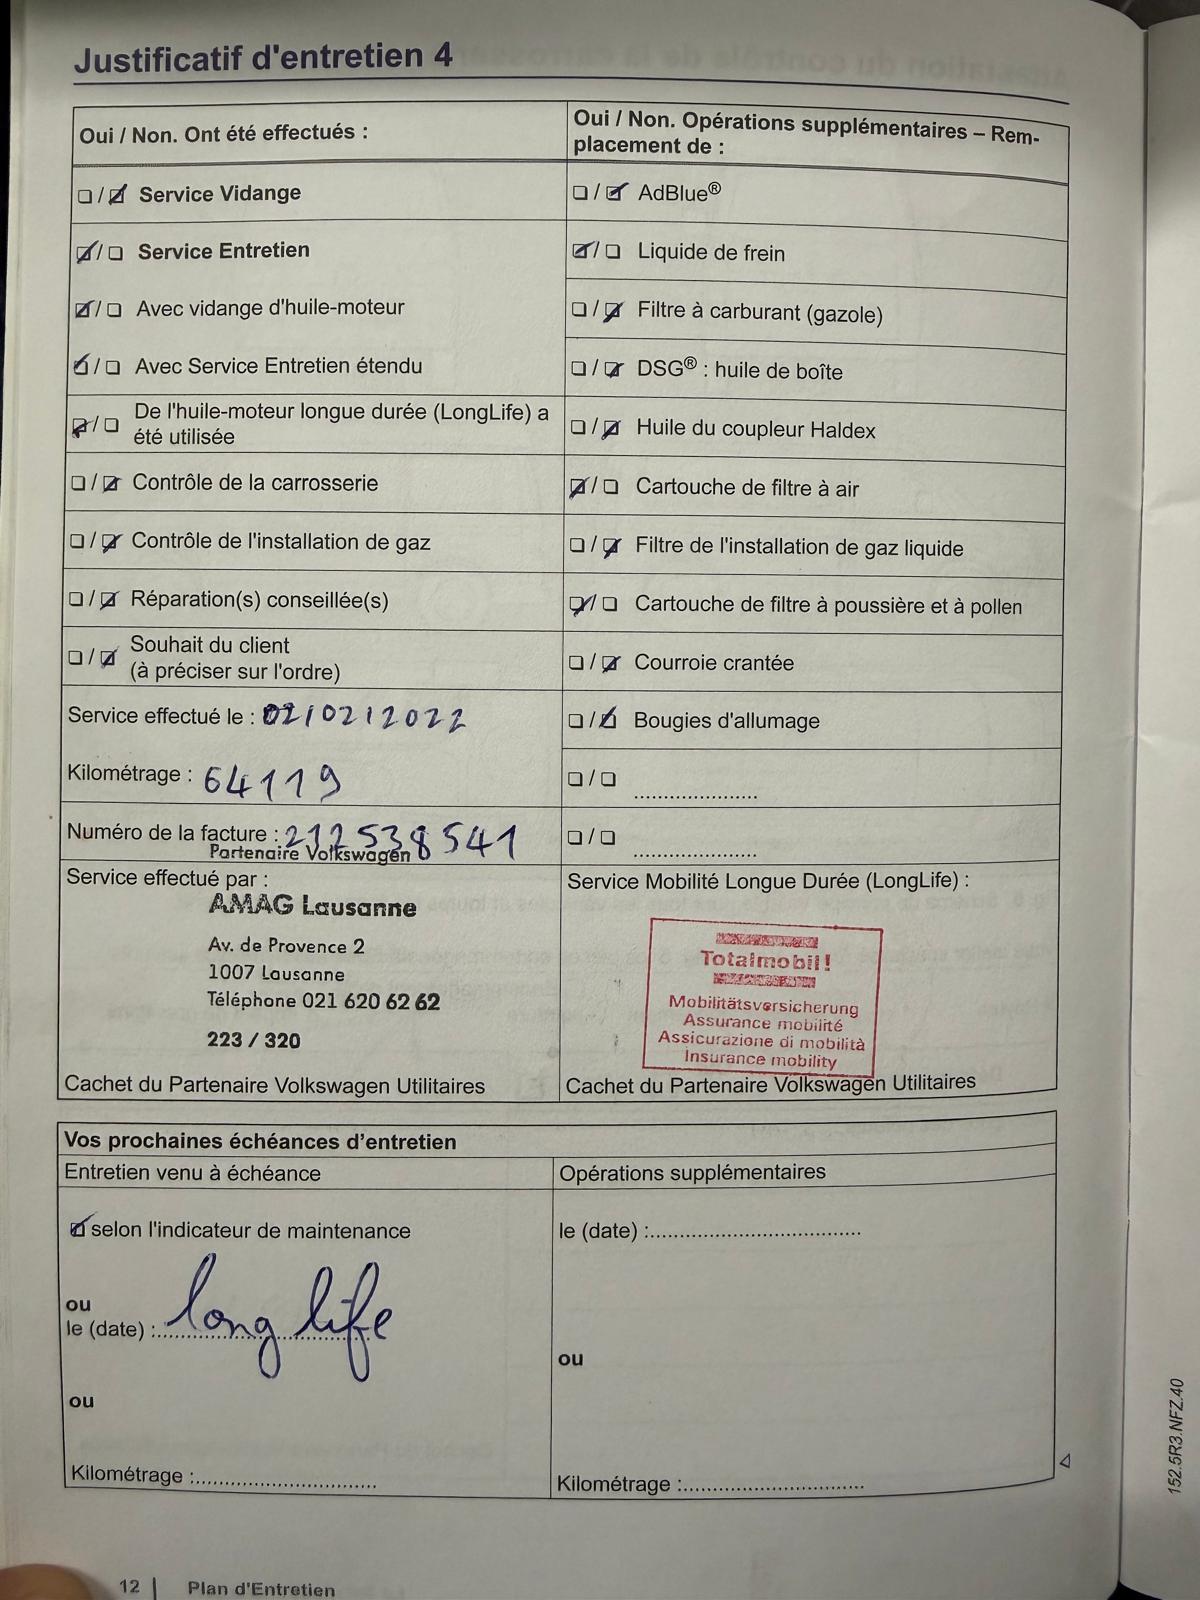 Justificatif d'entretien 4
Oui / Non. Ont été effectués :
❏ / ☑ Service Vidange
☑ / ❏ Service Entretien
☑ / ❏ Avec vidange d'huile-moteur
☑ / ❏ Avec Service Entretien étendu
☑ / ❏ De l'huile-moteur longue durée (LongLife) a
été utilisée
❏ / ☑ Contrôle de la carrosserie
❏ / ☑ Contrôle de l'installation de gaz
❏ / ☑ Réparation(s) conseillée(s)
❏ / ☑ Souhait du client
(à préciser sur l'ordre)
Service effectué le : 02/02/2022
Kilométrage : 64119
Numéro de la facture : 212538541
Partenaire Volkswagen
Service effectué par :
AMAG Lausanne
Av. de Provence 2
1007 Lausanne
Téléphone 021 620 62 62
223 / 320
Cachet du Partenaire Volkswagen Utilitaires
Oui / Non. Opérations supplémentaires – Rem-
placement de :
❏ / ☑ AdBlue®
☑ / ❏ Liquide de frein
❏ / ☑ Filtre à carburant (gazole)
❏ / ☑ DSG® : huile de boîte
❏ / ☑ Huile du coupleur Haldex
☑ / ❏ Cartouche de filtre à air
❏ / ☑ Filtre de l'installation de gaz liquide
☑ / ❏ Cartouche de filtre à poussière et à pollen
❏ / ☑ Courroie crantée
❏ / ☑ Bougies d'allumage
❏ / ❏ .....................
❏ / ❏ .....................
Service Mobilité Longue Durée (LongLife) :
Totalmobil!
Mobilitätsversicherung
Assurance mobilité
Assicurazione di mobilità
Insurance mobility
Cachet du Partenaire Volkswagen Utilitaires
Vos prochaines échéances d'entretien
Entretien venu à échéance
☑ selon l'indicateur de maintenance
ou
le (date) : long life
ou
Kilométrage :..............................
Opérations supplémentaires
le (date) :...................................
ou
Kilométrage :..............................
152.5R3.NFZ.40
12 | Plan d'Entretien